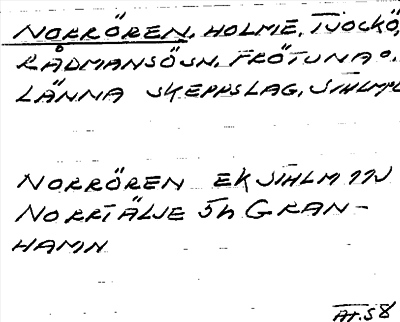 NORRÖREN, HOLME, TJOCKÖ,
RÅDMANSÖSN, FRÖTUNA O.
LÄNNA SKEPPSLAG, STHLMS
NORRÖREN EK STHLM 11J
NORRTÄLJE 5h GRAN-
HAMN